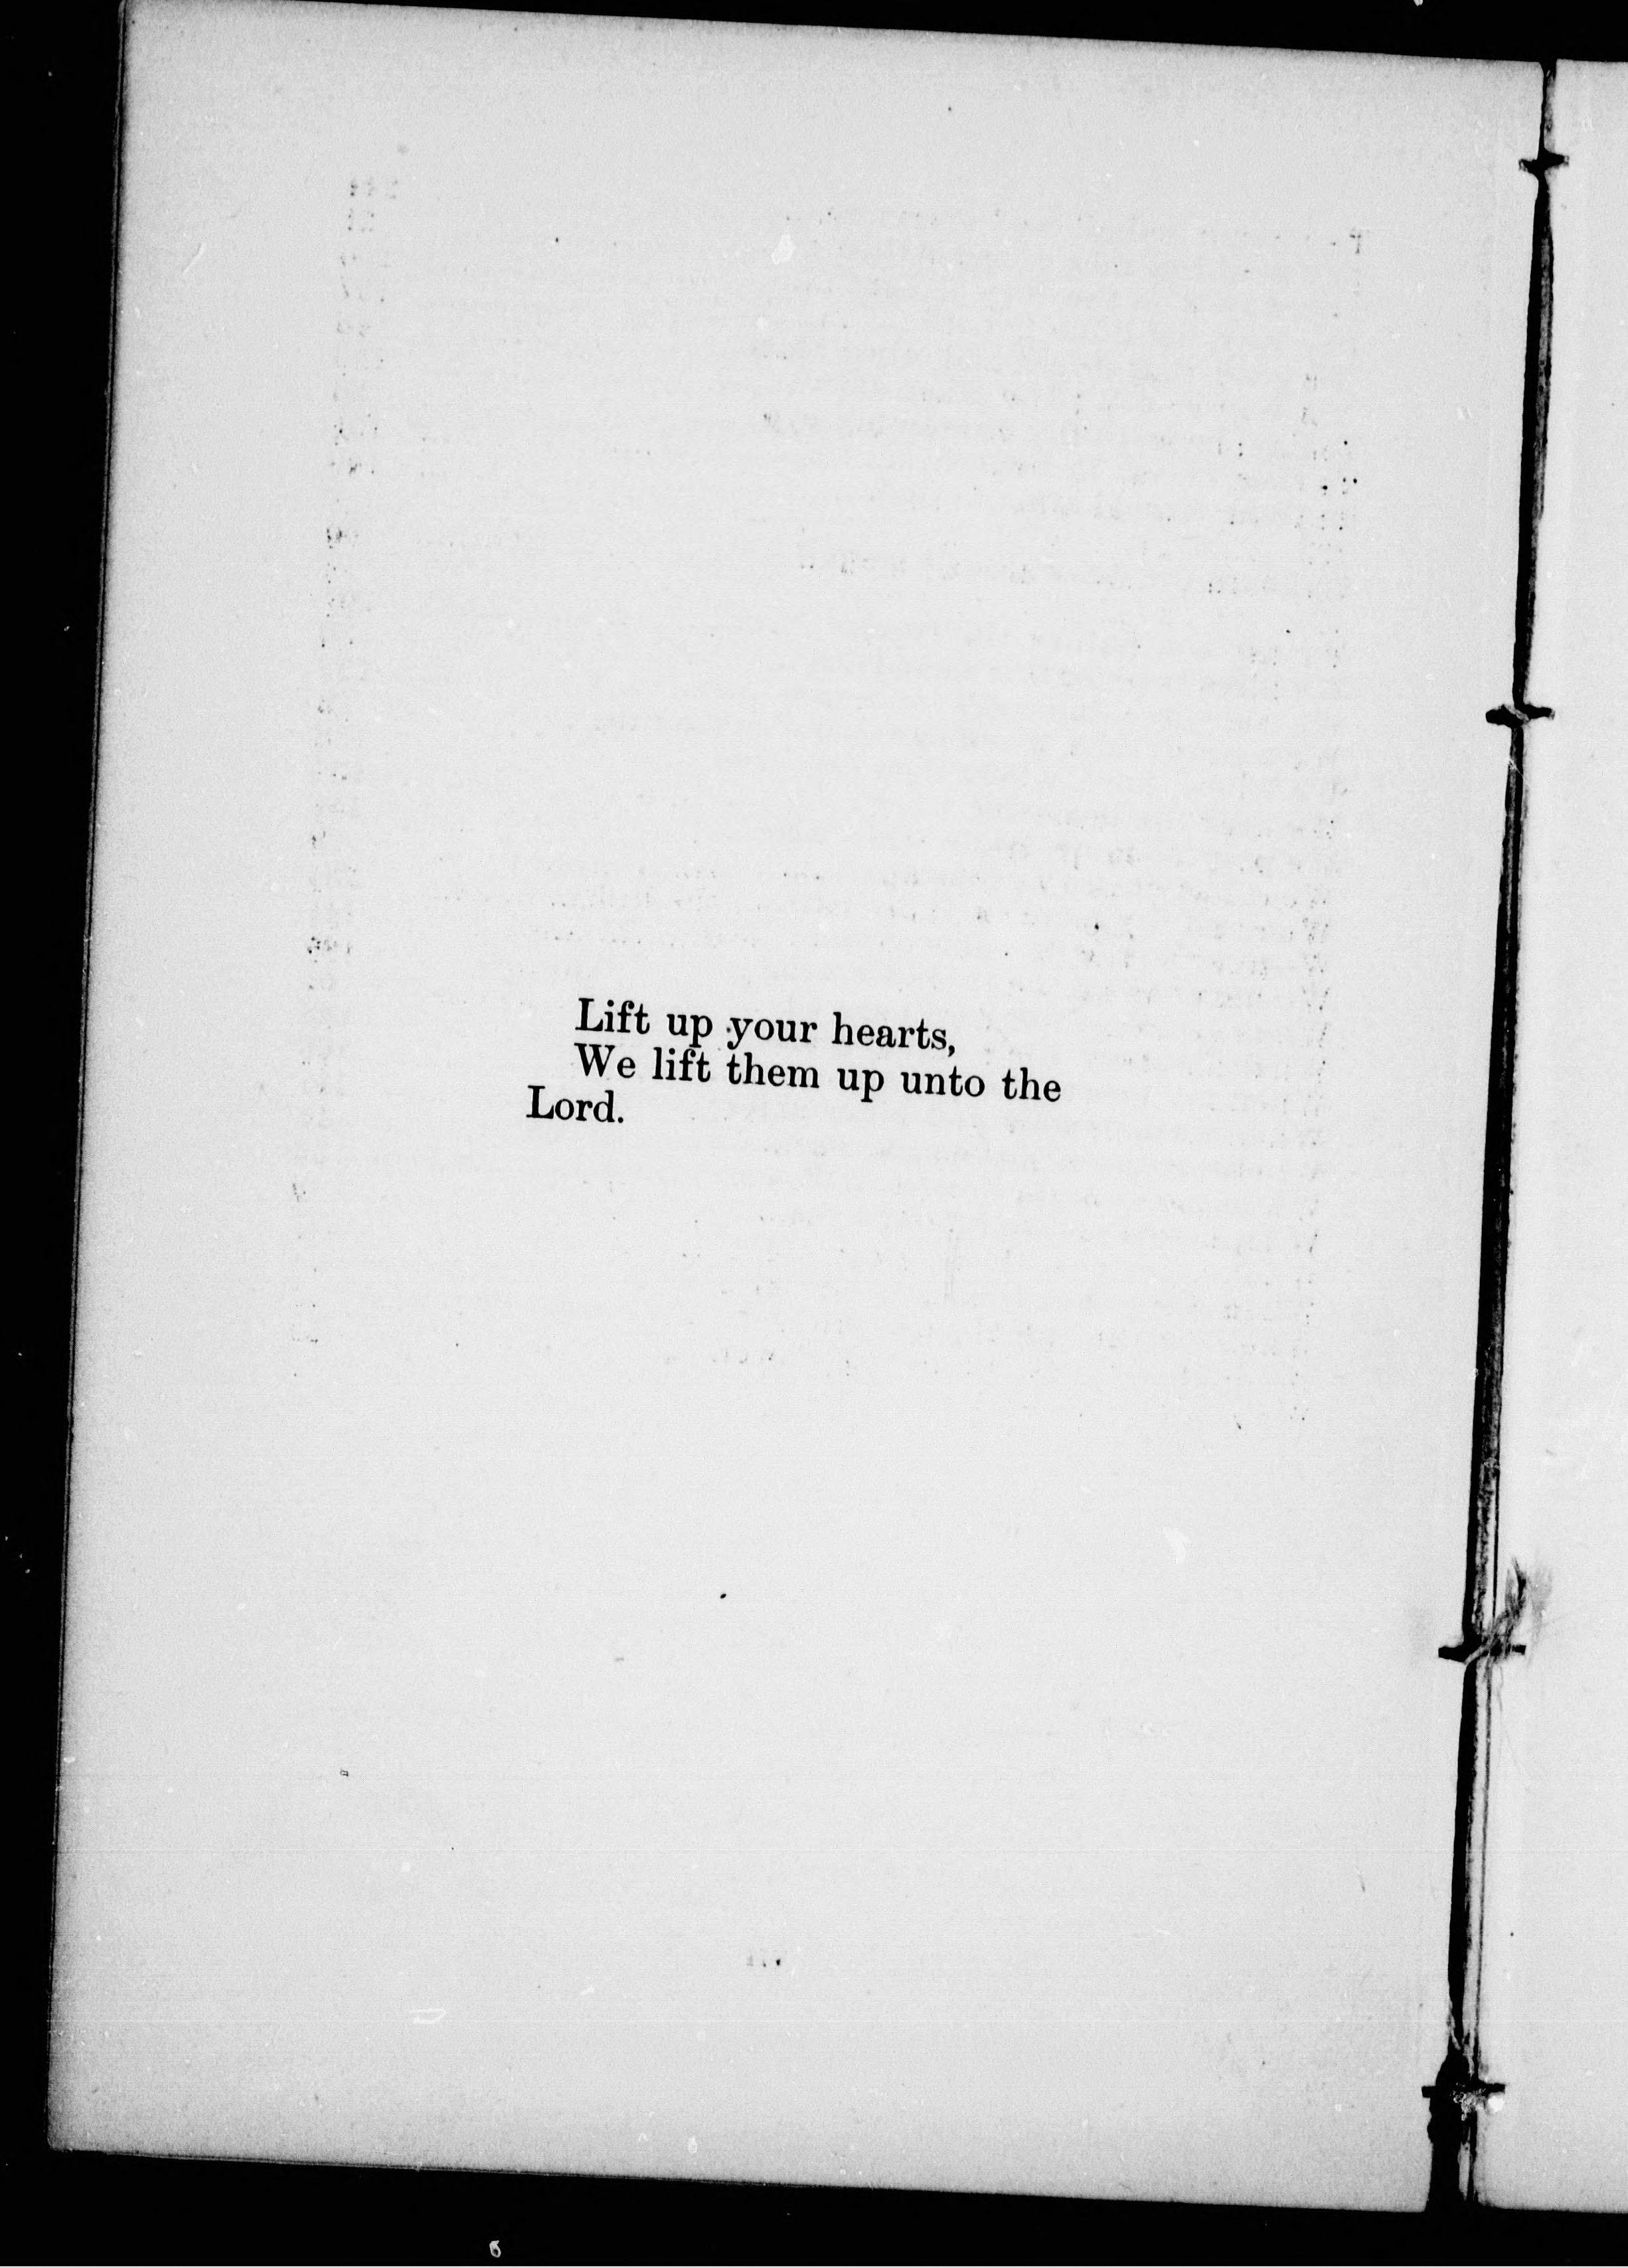 Lift up your hearts,
We lift them up unto the
Lord.